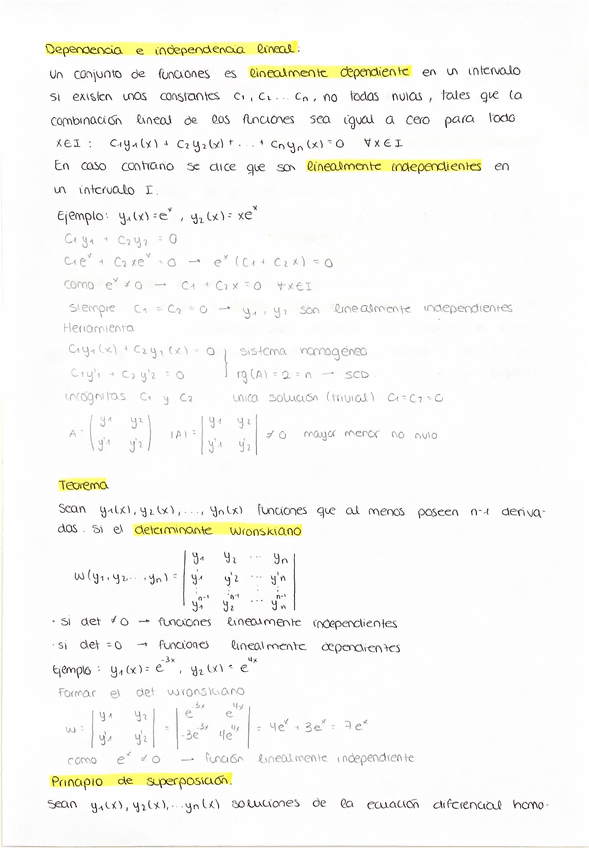 Dependencia e independencia lineal:
Un conjunto de funciones es linealmente dependiente en un intervalo
si existen unas constantes C₁, C₂ ... Cₙ, no todas nulas, tales que la
combinación lineal de las funciones sea igual a cero para todo
x∈I : C₁y₁(x) + C₂y₂(x) + ... + Cₙyₙ(x) = 0 ∀x∈I
En caso contrario se dice que son linealmente independientes en
un intervalo I.
Ejemplo: y₁(x) = eˣ, y₂(x) = xeˣ
C₁y₁ + C₂y₂ = 0
C₁eˣ + C₂xeˣ = 0 → eˣ(C₁ + C₂x) = 0
como eˣ ≠ 0 → C₁ + C₂x = 0 ∀x∈I
siempre C₁ = C₂ = 0 → y₁, y₂ son linealmente independientes
Herramienta
C₁y₁(x) + C₂y₂(x) = 0 | sistema homogéneo
C₁y'₁ + C₂y'₂ = 0 | rg(A) = 2 = n → SCD
incógnitas C₁ y C₂ única solución (trivial) C₁=C₂=0
A = (y₁ y₂ / y'₁ y'₂) |A| = |y₁ y₂ / y'₁ y'₂| ≠ 0 mayor menor no nulo
Teorema
Sean y₁(x), y₂(x), ..., yₙ(x) funciones que al menos poseen n-1 deriva-
das. Si el determinante Wronskiano
W(y₁, y₂ ..., yₙ) = |y₁ y₂ ... yₙ / y'₁ y'₂ ... y'ₙ / ⋮ ⋮ ⋮ / y₁ⁿ⁻¹ y₂ⁿ⁻¹ ... yₙⁿ⁻¹|
· si det ≠ 0 → funciones linealmente independientes
· si det = 0 → funciones linealmente dependientes
Ejemplo: y₁(x) = e⁻³ˣ, y₂(x) = e⁴ˣ
Formar el det Wronskiano
W = |y₁ y₂ / y'₁ y'₂| = |e⁻³ˣ e⁴ˣ / -3e⁻³ˣ 4e⁴ˣ| = 4eˣ + 3eˣ = 7eˣ
como eˣ ≠ 0 → función linealmente independiente
Principio de superposición.
Sean y₁(x), y₂(x), ... yₙ(x) soluciones de la ecuación diferencial homo-